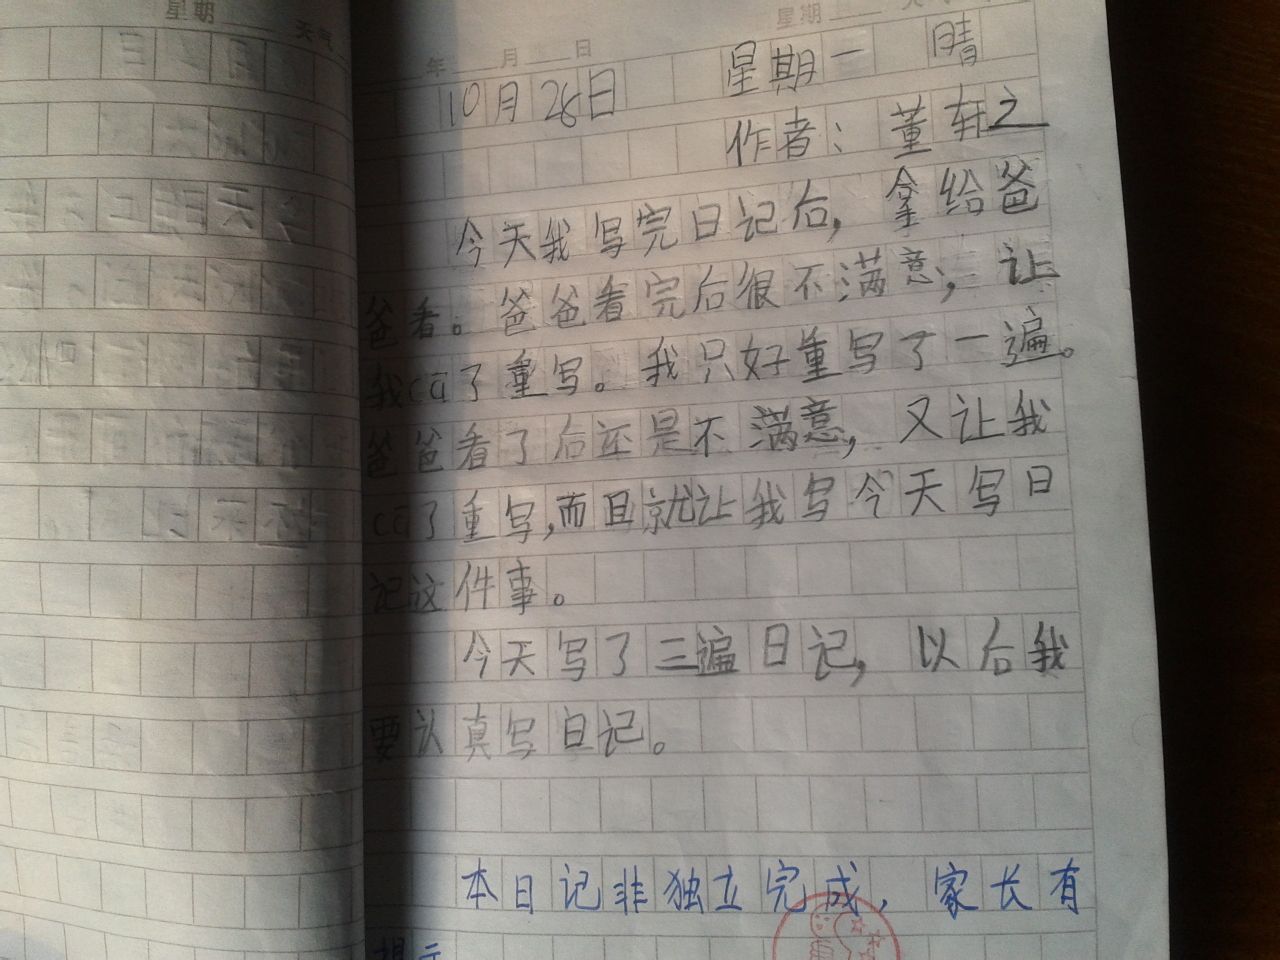 星期 天气
星期 天气
年 月 日
10月26日 星期一 晴
作者:董轩之
今天我写完日记后,拿给爸
爸看。爸爸看完后很不满意,让
我cā了重写。我只好重写了一遍。
爸爸看了后还是不满意,又让我
cā了重写,而且就让我写今天写日
记这件事。
今天写了三遍日记,以后我
要认真写日记。
本日记非独立完成,家长有
提示